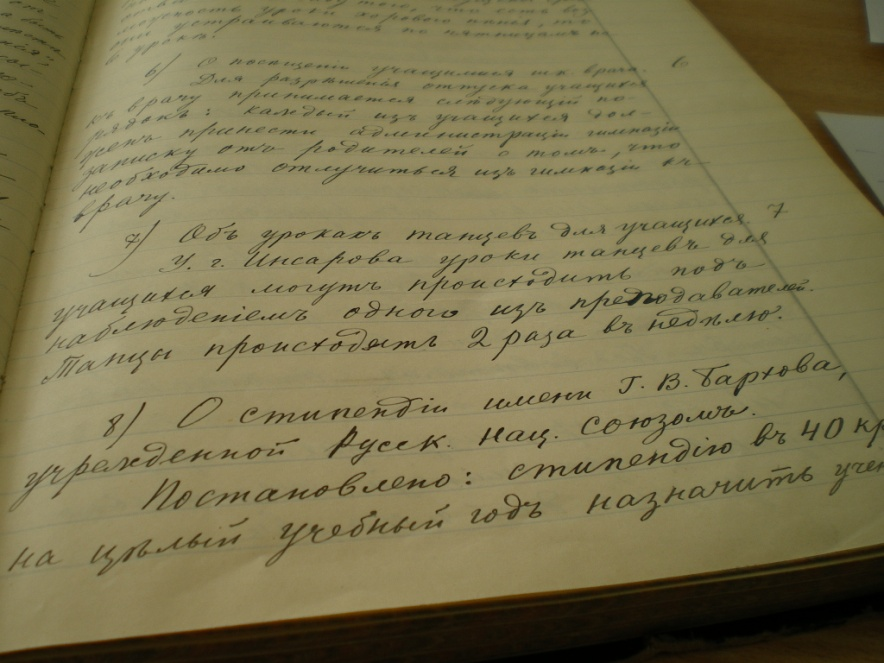 можность уроки хорового пенія, то
они устраиваются по пятницамъ на
6 урокѣ.
6) О посѣщеніи учащимися шк. врача. 6
Для разрѣшенья отпуска учащихся
къ врачу принимается слѣдующій по-
рядокъ: каждый изъ учащихся дол-
женъ принести администраціи гимназіи
записку отъ родителей о томъ, что
необходимо отлучиться изъ гимназіи къ
врачу.
7) Объ урокахъ танцевъ для учащихся 7
У г. Инсарова уроки танцевъ для
учащихся могутъ происходить подъ
наблюденіемъ одного изъ преподавателей.
Танцы происходятъ 2 раза въ недѣлю.
8) О стипендіи имени Г. В. Бархова,
учрежденной Русск. Нац. союзомъ.
Постановлено: стипендію въ 40 кр
на цѣлый учебный годъ назначить учен